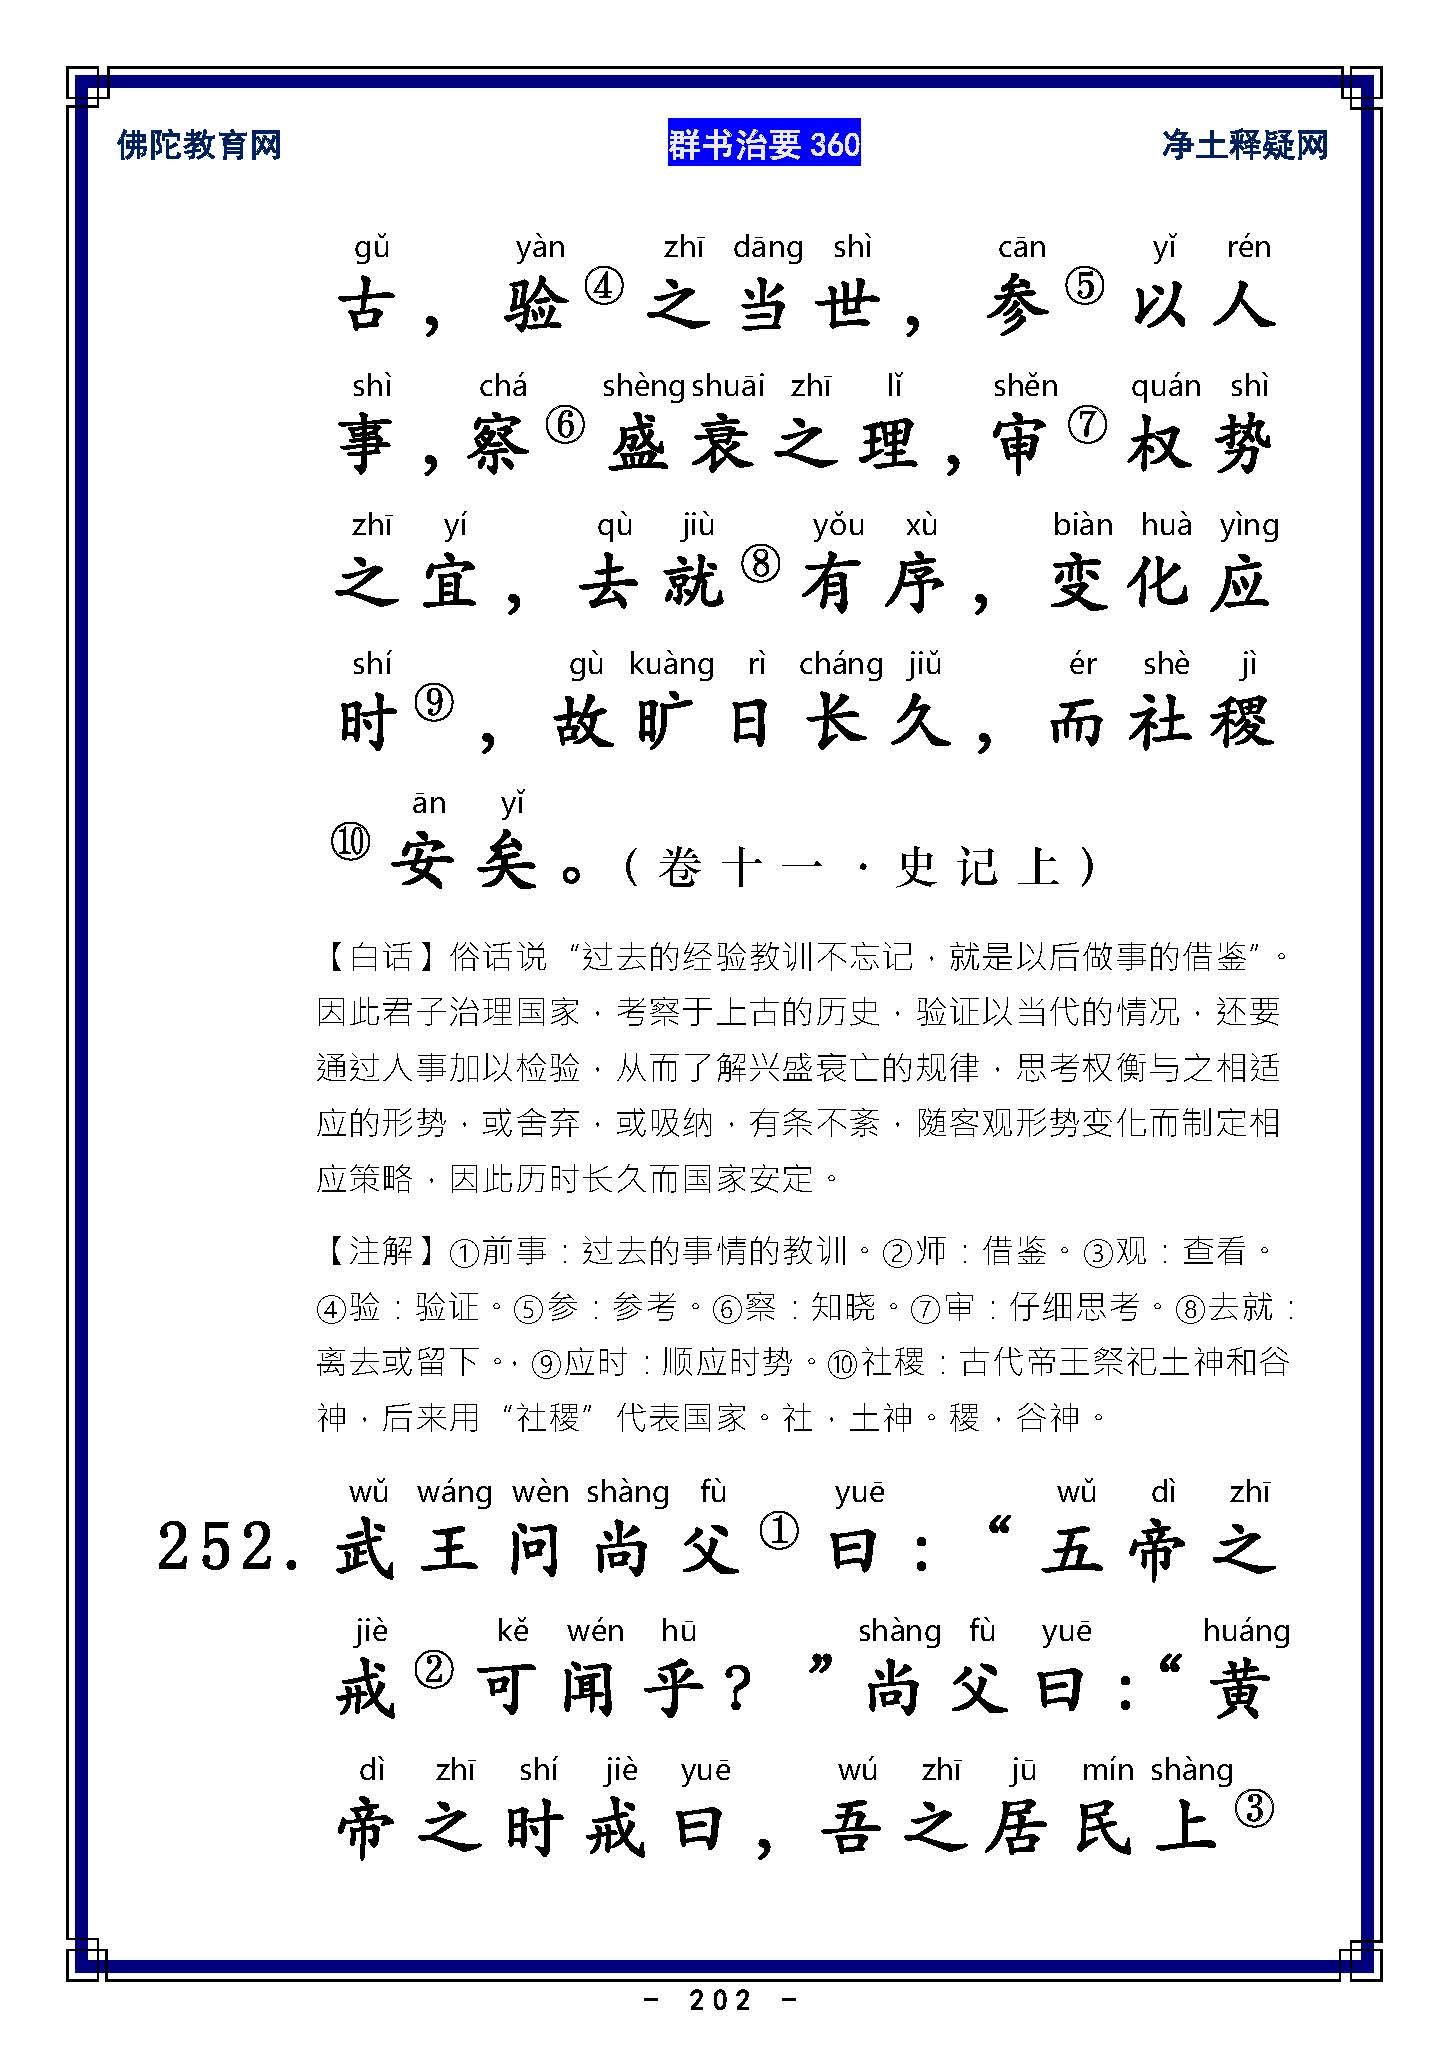 佛陀教育网 群书治要360 净土释疑网
gǔ yàn zhī dāng shì cān yǐ rén
古，验④之当世，参⑤以人
shì chá shèng shuāi zhī lǐ shěn quán shì
事，察⑥盛衰之理，审⑦权势
zhī yí qù jiù yǒu xù biàn huà yìng
之宜，去就⑧有序，变化应
shí gù kuàng rì cháng jiǔ ér shè jì
时⑨，故旷日长久，而社稷
ān yǐ
⑩安矣。（卷十一·史记上）
【白话】俗话说“过去的经验教训不忘记，就是以后做事的借鉴”。
因此君子治理国家，考察于上古的历史，验证以当代的情况，还要
通过人事加以检验，从而了解兴盛衰亡的规律，思考权衡与之相适
应的形势，或舍弃，或吸纳，有条不紊，随客观形势变化而制定相
应策略，因此历时长久而国家安定。
【注解】①前事：过去的事情的教训。②师：借鉴。③观：查看。
④验：验证。⑤参：参考。⑥察：知晓。⑦审：仔细思考。⑧去就：
离去或留下。，⑨应时：顺应时势。⑩社稷：古代帝王祭祀土神和谷
神，后来用“社稷”代表国家。社，土神。稷，谷神。
wǔ wáng wèn shàng fù yuē wǔ dì zhī
252. 武王问尚父①曰：“五帝之
jiè kě wén hū shàng fù yuē huáng
戒②可闻乎？”尚父曰：“黄
dì zhī shí jiè yuē wú zhī jū mín shàng
帝之时戒曰，吾之居民上③
- 202 -